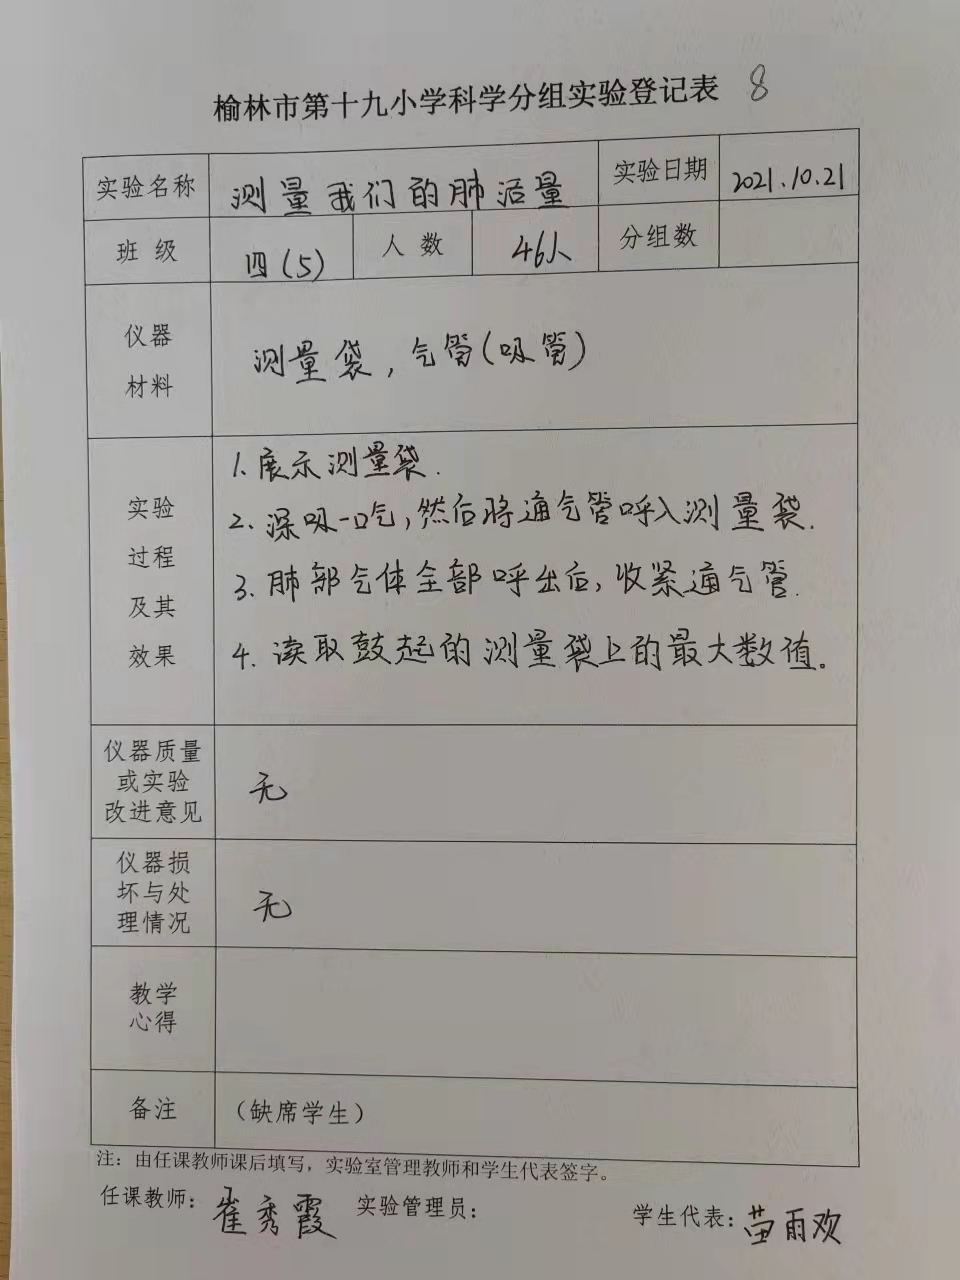 榆林市第十九小学科学分组实验登记表 8
实验名称 测量我们的肺活量 实验日期 2021.10.21
班级 四(5) 人数 46人 分组数
仪器
材料
测量袋,气管(吸管)
实验
过程
及其
效果
1.展示测量袋.
2.深吸一口气,然后将通气管呼入测量袋.
3.肺部气体全部呼出后,收紧通气管.
4.读取鼓起的测量袋上的最大数值。
仪器质量
或实验
改进意见
无
仪器损
坏与处
理情况
无
教学
心得
备注 (缺席学生)
注:由任课教师课后填写,实验室管理教师和学生代表签字。
任课教师:崔秀霞 实验管理员: 学生代表:苗雨欢